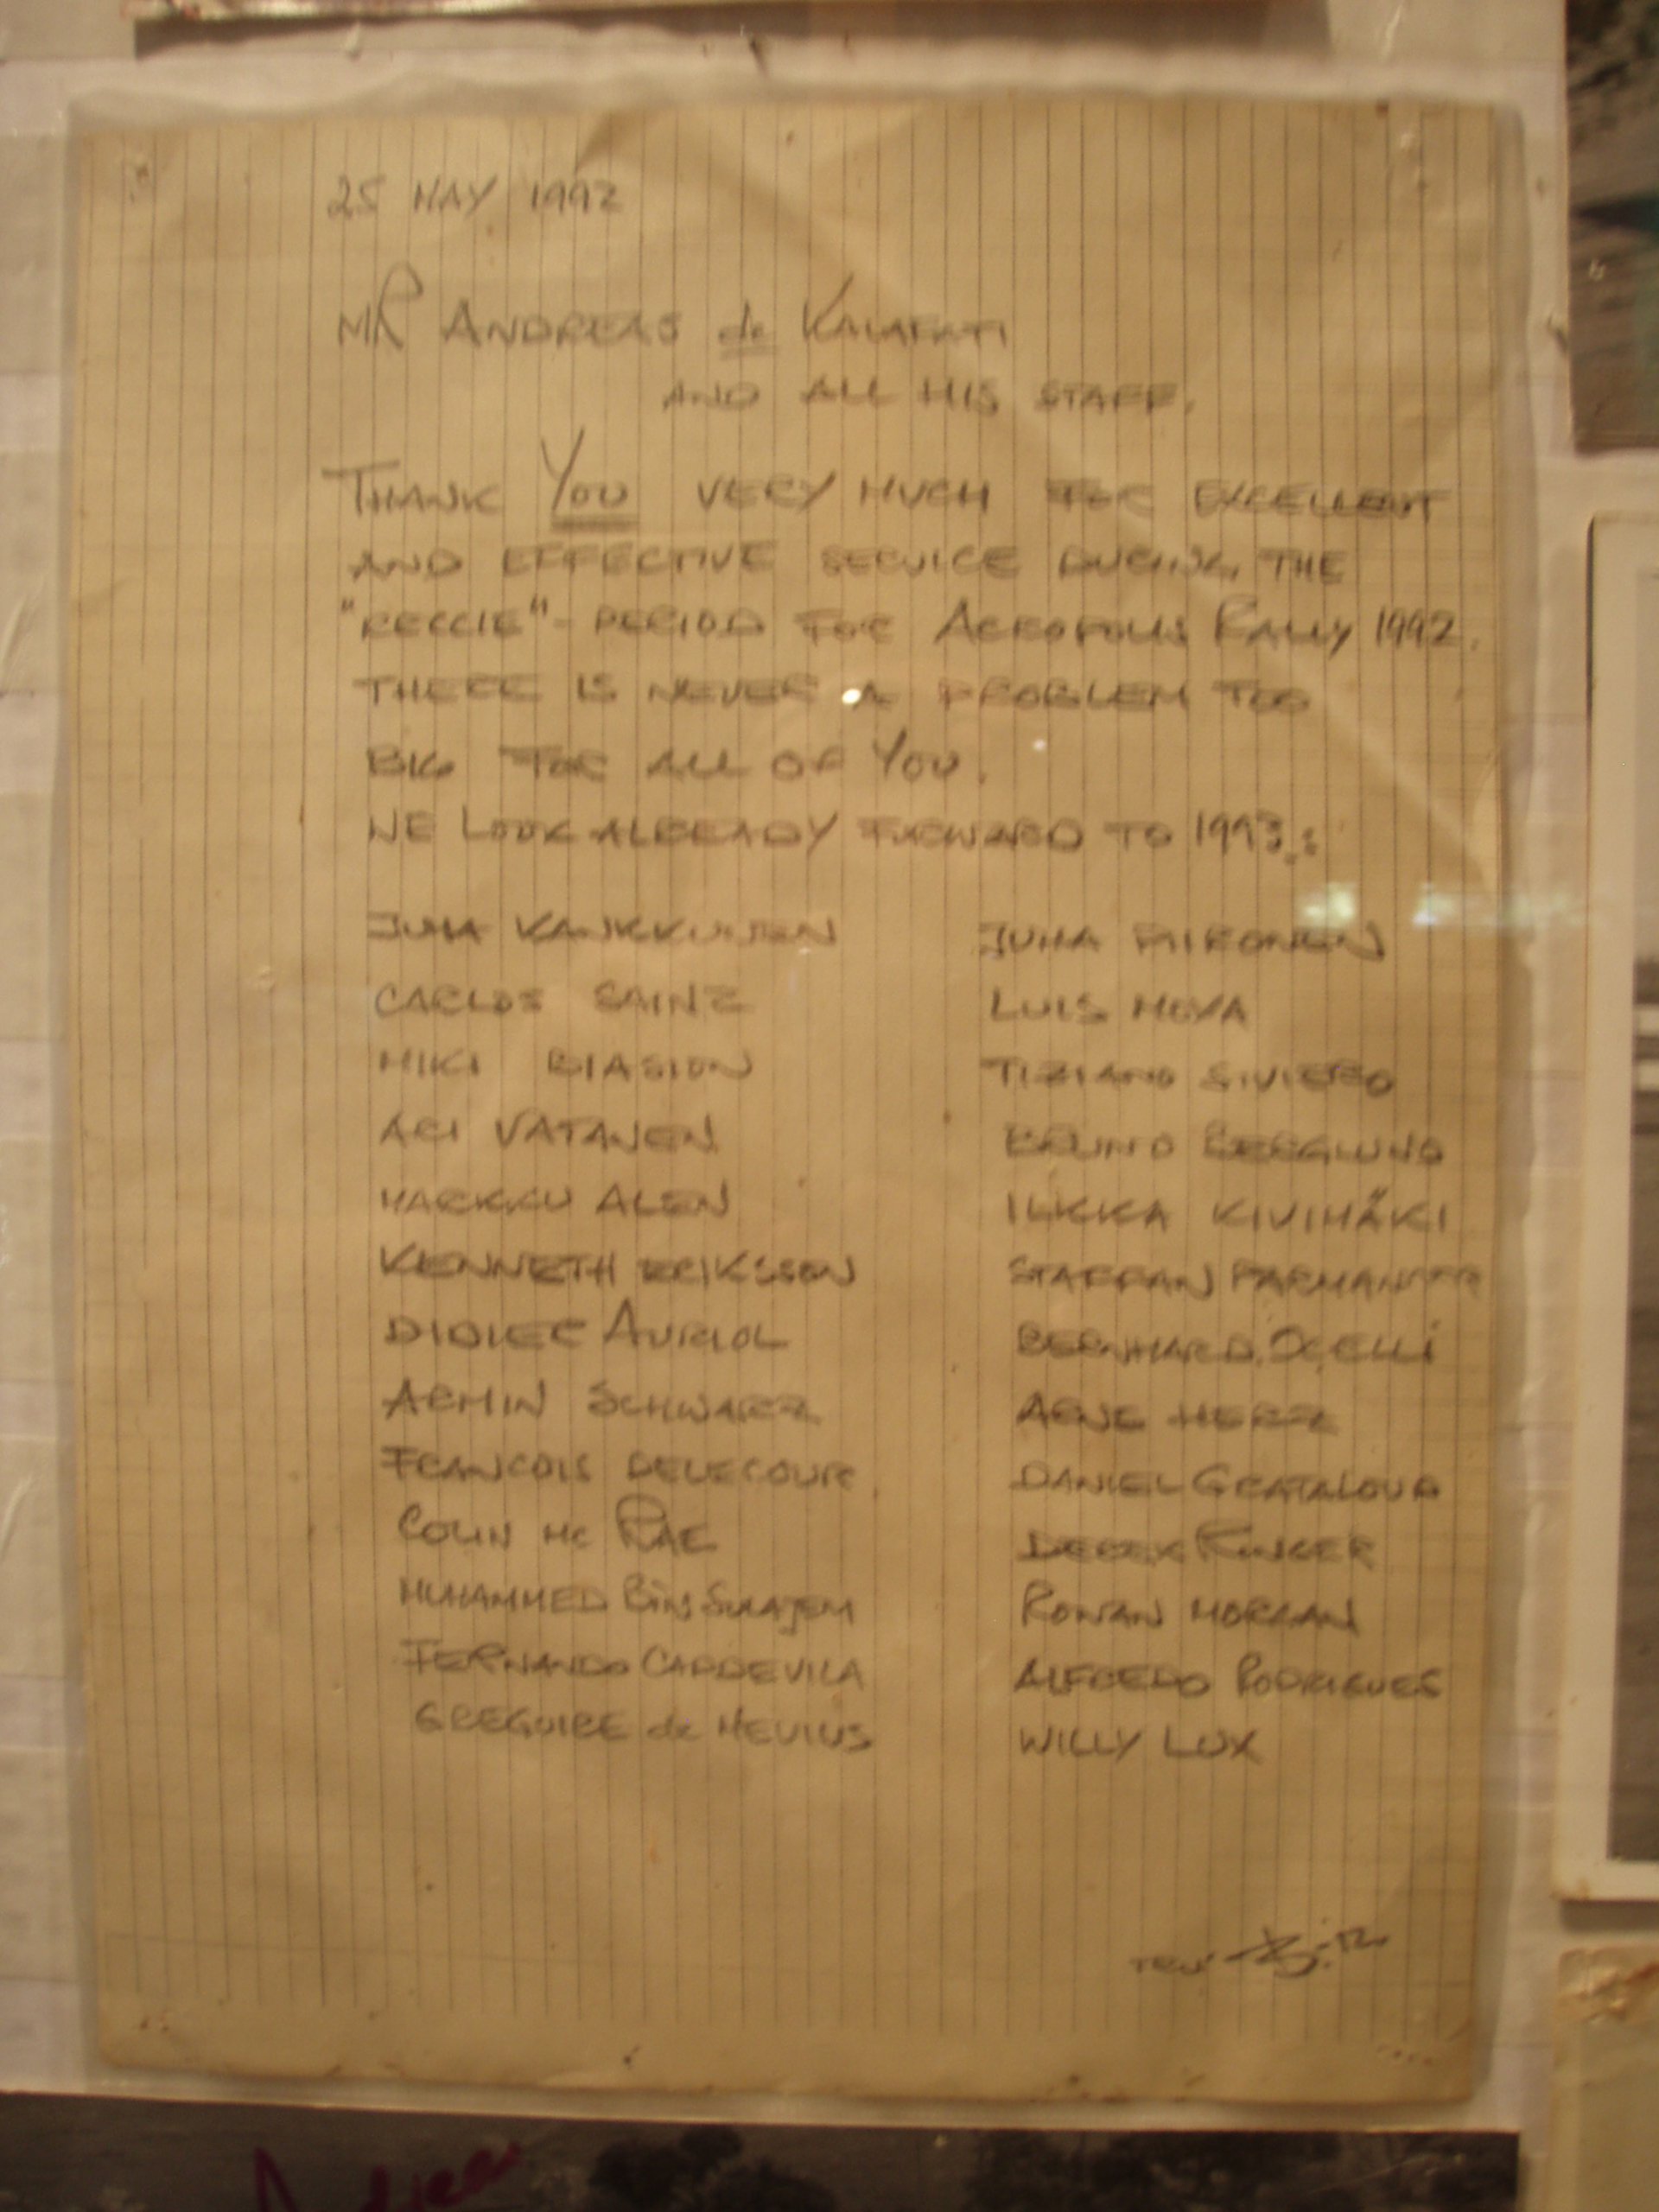 25 MAY 1992
MR ANDREAS de KALAFATI
AND ALL HIS STAFF.
THANK YOU VERY MUCH FOR EXCELLENT
AND EFFECTIVE SERVICE DURING THE
"RECCIE"- PERIOD FOR ACROPOLIS RALLY 1992.
THERE IS NEVER A PROBLEM TOO
BIG FOR ALL OF YOU.
WE LOOK ALREADY FORWARD TO 1993.:
JUHA KANKKUNEN JUHA PIIRONEN
CARLOS SAINZ LUIS MOYA
MIKI BIASION TIZIANO SIVIERO
ARI VATANEN BRUNO BERGLUND
MARKKU ALEN ILKKA KIVIMÄKI
KENNETH ERIKSSON STAFFAN PARMANDER
DIDIER AURIOL BERNHARD OCELLI
ARMIN SCHWARZ ARNE HERZ
FRANCOIS DELECOUR DANIEL GRATALOUP
COLIN Mc RAE DEREK RINGER
MUHAMMED BIN SULAJEM RONAN MORGAN
FERNANDO CAPDEVILA ALFREDO RODRIGUES
GREGOIRE de MEVIUS WILLY LUX